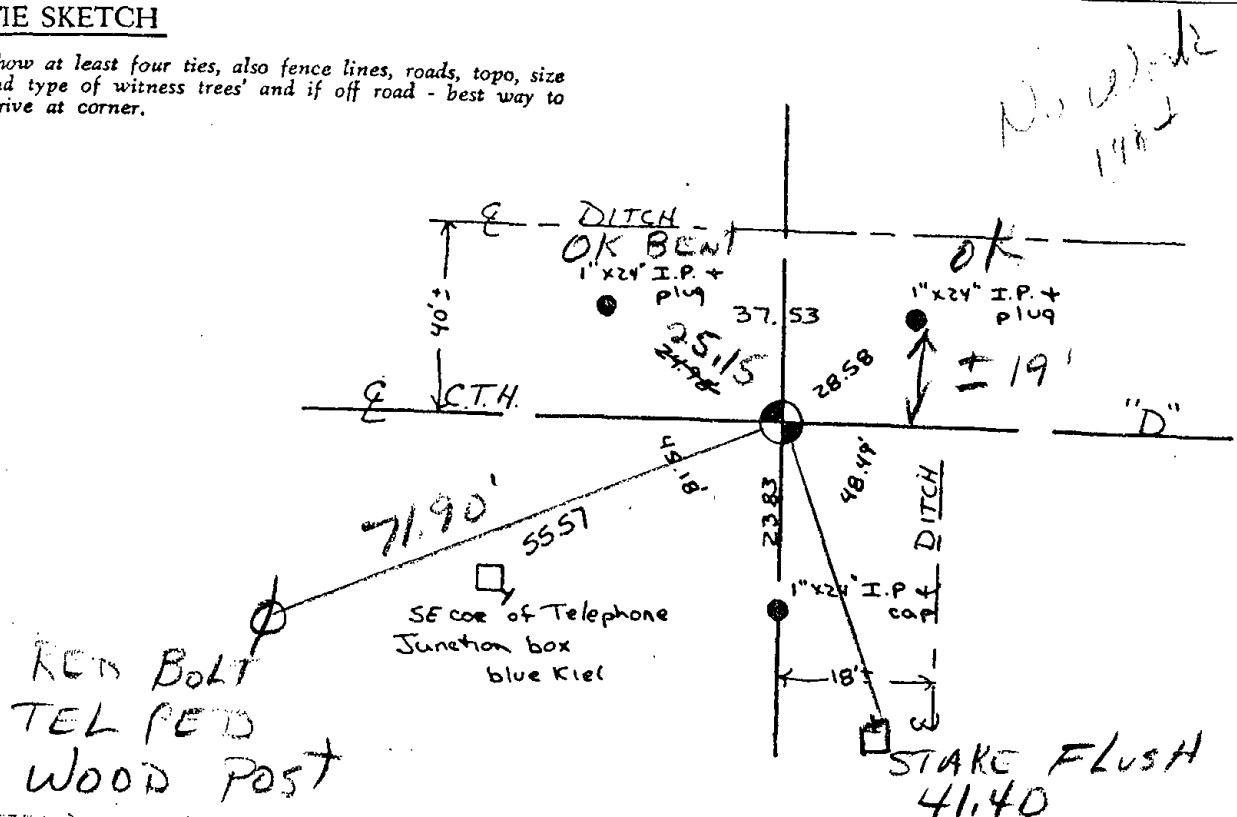 TIE SKETCH
how at least four ties, also fence lines, roads, topo, size
nd type of witness trees' and if off road - best way to
rive at corner.
℄ DITCH
OK BENT
OK
1" x 24" I.P. +
plug
1" x 24" I.P. +
plug
40'±
37.53
25.15
24.98
28.58
± 19'
℄ C.T.H.
"D"
45.18'
48.49'
71.90'
55.57
23.83
DITCH
1" x 24" I.P +
cap
SE cor of Telephone
Junction box
blue Kiel
18'±
℄
RED BOLT
TEL PED
WOOD POST
STAKE FLUSH
41.40